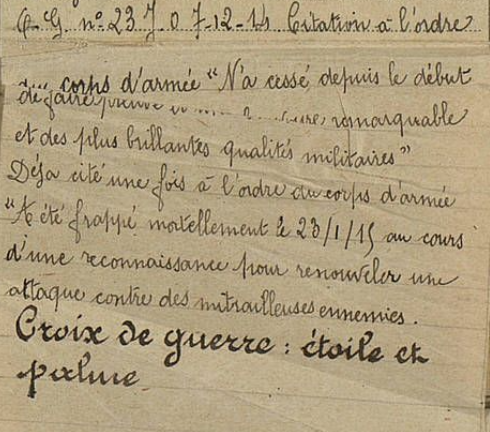 Q. G. nº 237. 0 7-12-14 Citation à l'ordre
corps d'armée "N'a cessé, depuis le début
de faire preuve remarquable
et des plus brillantes qualités militaires"
Déja cité une fois à l'ordre du corps d'armée
"A été frappé mortellement le 23/1/15 au cours
d'une reconnaissance pour renouveler une
attaque contre des mitrailleuses ennemies.
Croix de guerre : étoile et
palme